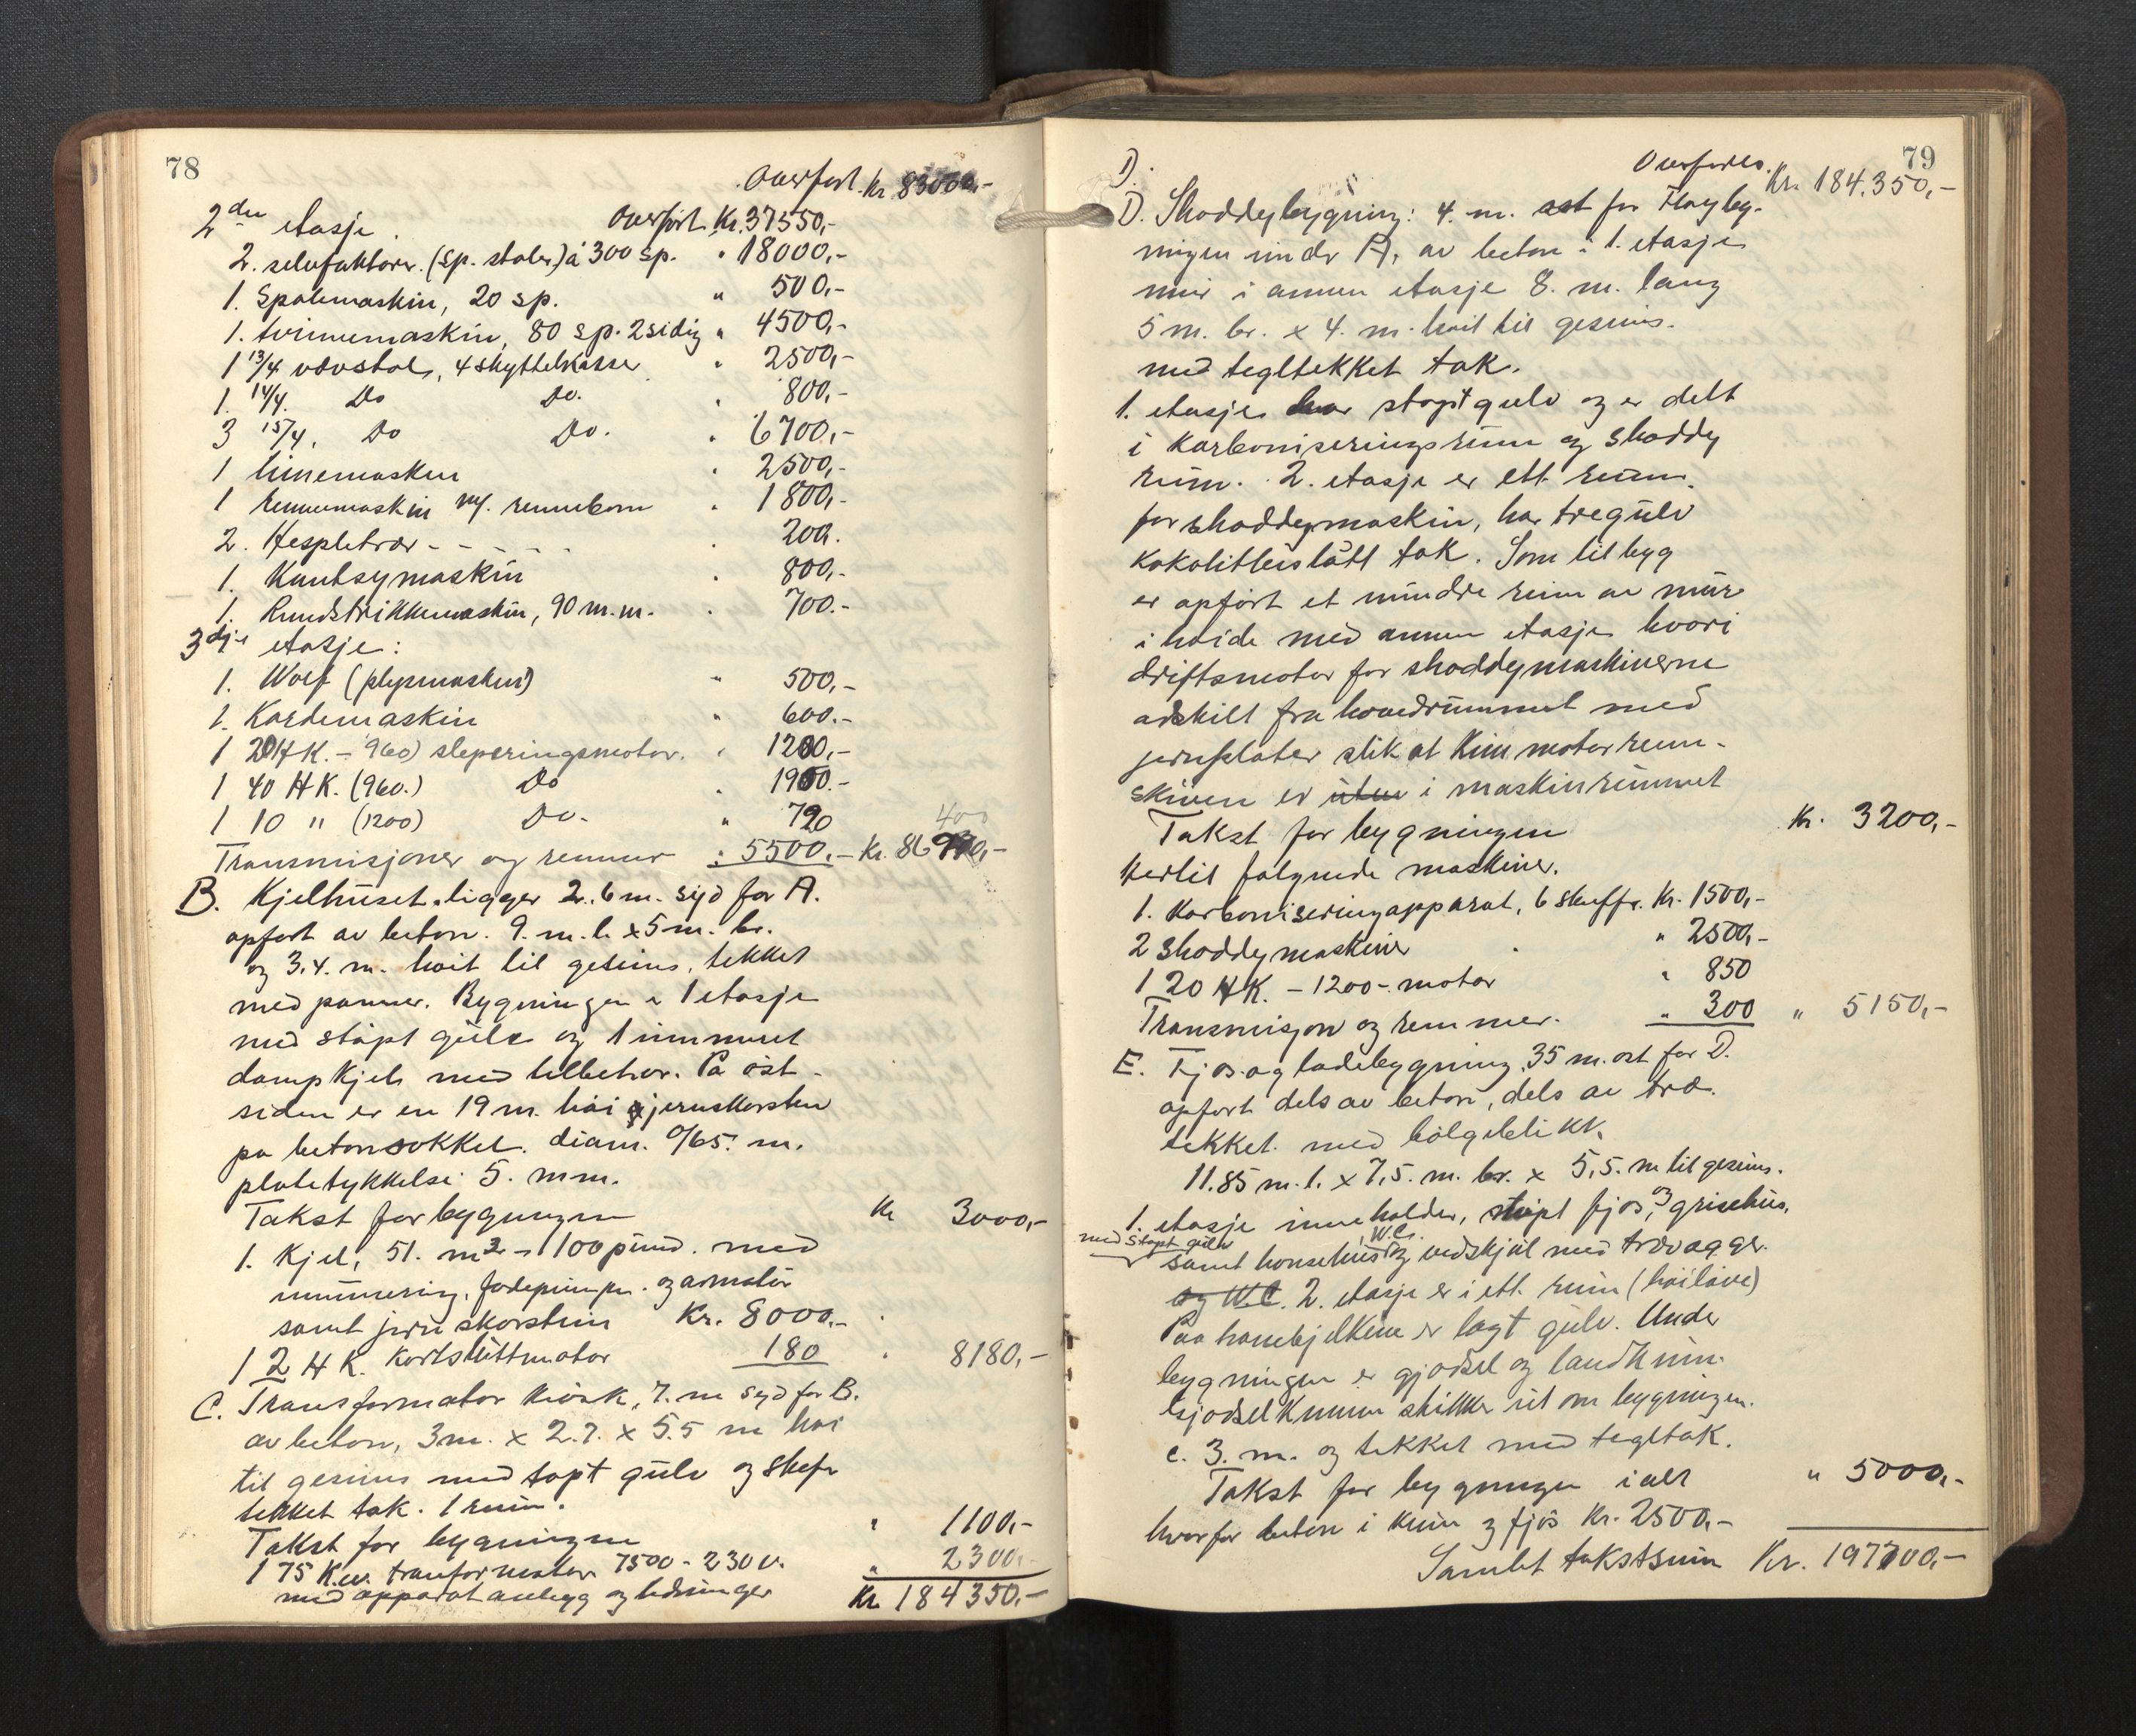 78
Overført. Kr. 83000,-
2den etasje. Overført Kr. 37550,-
2. selvfaktorer. (sp. stoler) á 300 sp. " 18000,-
1. Spolemaskin, 20 sp. " 500,-
1. tvinnemaskin, 80 sp. 2sidig " 4500,-
1 13/4 vævstol, 4 skyttelkasse " 2500,-
1. 14/4. Do Do. " 800,-
3 15/4. Do Do. " 6700,-
1 limemaskin " 2500,-
1 rennemaskin m/. rennebom " 1800,-
2. Hespletrær - - - - - " 200.
1. Kantsymaskin " 800,-
1. Rundstrikkemaskin, 90 m.m. " 700.-
3dje etasje:
1. Wolf (plysmaskin) " 500,-
1. Kardemaskin " 600.-
1 20 H K. - 960) sleperingsmotor. " 1200,-
1 40 H K. (960.) Do " 1900.-
1 10 " (1200) Do. " 720
400
Transmisjoner og remmer " 5500,- Kr. 86
B. Kjelhuset ligger 2.6 m. syd for A.
opført av beton. 9. m. l. x 5 m. br.
og 3.4. m. høit til gesims, tekket
med panner. Bygningen er 1 etasje
med støpt gulv og 1 innmuret
dampkjel med tilbehør. På øst-
siden er en 19 m. høi jernskorsten
på betonsokkel. diam. 0/65. m.
platetykkelse 5. mm.
Takst for bygningen Kr 3000,-
1. Kjel, 51. m2 - 100 pund. med
innmuring, fødepumpe. og armatur
samt jern skorstein Kr. 8000.-
1 2 H K. Kortsluttmotor 180 " 8180,-
C. Transformator kiosk, 7. m syd for B.
av beton, 3 m. x 2.7. x 5.5 m høi
til gesims med støpt gulv og skifer
tekket tak. 1 rum.
Takst for bygningen " 1100,-
1 75 K.w. tranformator 7500 - 230 v. " 2300.
med apparatanlegg og ledninger Kr. 184350,-
79
Overføres. Kr. 184.350,-
D.
D. Shoddybygning: 4. m. øst for Fløyby-
ningen under A, av beton i 1. etasje
mur i annen etasje 8. m. lang
5 m. br. x 4. m. høit til gesims.
med tegltekket tak.
1. etasje har støpt gulv og er delt
i karboniseringsrum og shoddy
rum. 2. etasje er ett rum.
for shoddymaskin, har tregulv
kokolitbeslått tak. Som tilbyg
er opført et mindre rum av mur
i høide med annen etasje hvori
driftsmotor for shoddymaskinerne
adskilt fra hovedrummet med
jernplater slik at kun motorrem-
skiven er uten i maskinrummet
Takst for bygningen Kr. 3200,-
hertil følgende maskiner.
1. Karboniseringapparat, 6 skuffr. Kr. 1500,-
2 shoddymaskiner " 2500,-
1 20 H K. - 1200-. motor " 850
Transmisjon og remmer. " 300 " 5150,-
E. Fjøs og ladebygning, 35 m. øst for D.
opført dels av beton, dels av træ.
tekket med bølgeblikk.
11.85 m. l. x 7,5. m. br. x 5,5. m til gesims.
1. etasje inneholder, støpt fjøs, og grisehus,
med støpt gulv samt hønsehus, W.C. og vedskjul med trævægger.
og W.C. 2. etasje er i ett. rum (høilåve)
Paa hanebjelkene er lagt gulv. Under
bygningen er gjødsel og landkum.
Gjødselkummen stikker ut om bygningen.
c. 3. m. og tekket med tegltak.
Takst for bygningen ialt " 5000,-
hvorfor beton i kum og fjøs Kr. 2500,-
Samlet takstsum Kr. 197700,-